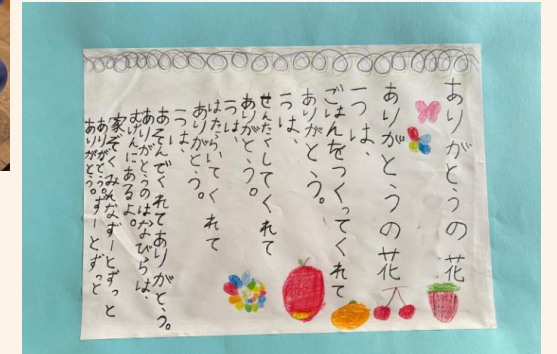 ありがとうの花
ありがとうの花
一つは、
ごはんをつくってくれて
ありがとう。
一つは、
せんたくしてくれて
ありがとう。
一つは、
はたらいてくれて
ありがとう。
一つは、
あそんでくれてありがとう。
ありがとうのはなびらは、
むげんにあるよ。
家ぞくみんなずーとずっと
ありがとう。ずーとずっと
ありがとう。